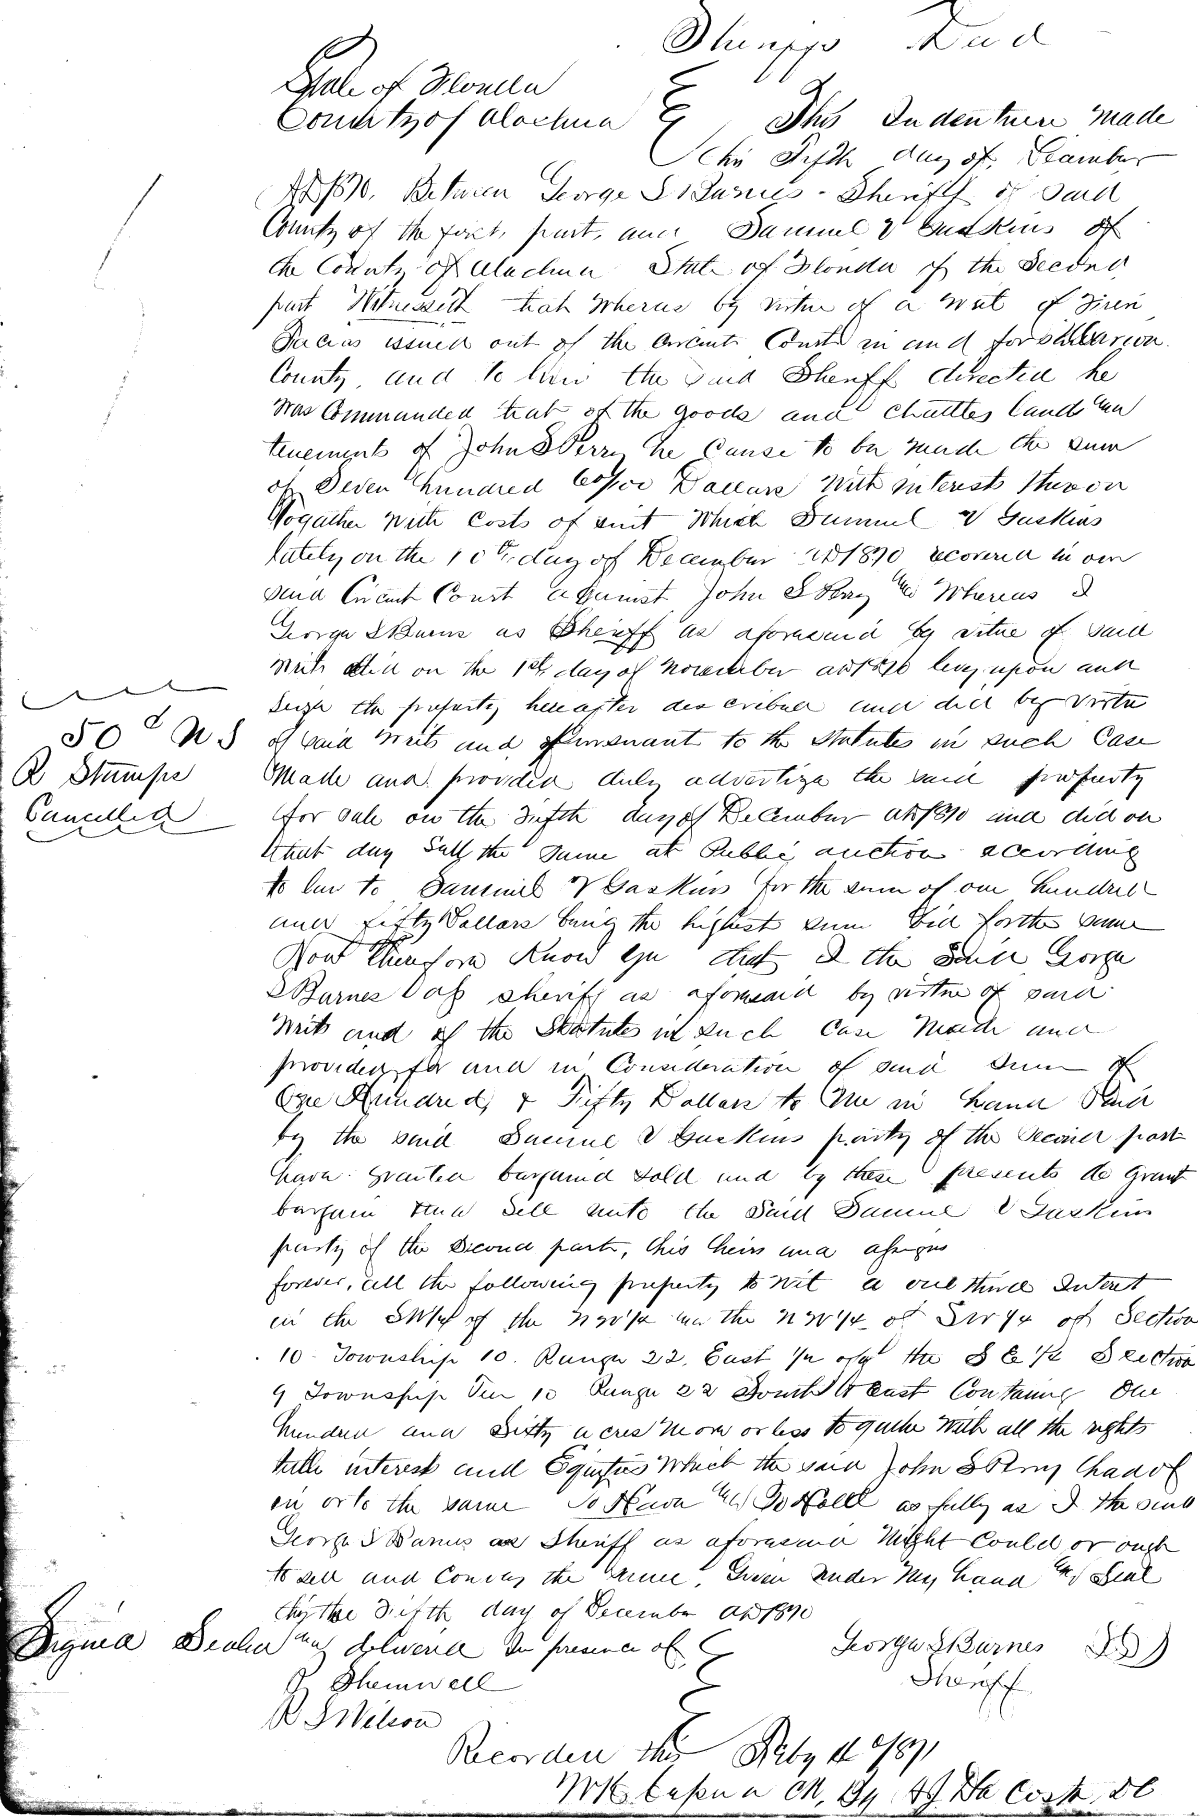 Sheriffs Deed
State of Florida
County of Alachua This Indenture made
this Fifth day of December
AD1870. Between George S Barnes - Sheriff of said
County of the first part, and Samuel V Gaskins of
the County of Alachua State of Florida of the Second
part Witnesseth that Wheras by virtue of a writ of Fieri
Facias issued out of the Circuit Court in and for
County, and to him the said Sheriff directed he
was Commanded that of the goods and chattles lands and
tenements of John S Perry he cause to be made the sum
of Seven hundred 60/100 Dollars with interest thereon
togather with costs of suit which Samuel V Gaskins
lately on the 10th day of December AD1870 recovered in our
said Circuit Court against John S Perry and Whereas I
George S Barnes as Sheriff as aforesaid by vitue of said
writs did on the 1st day of November AD1870 levy upon and
seize the property hereafter described and did by virtue
of said writs and pursuant to the statutes in such Case
Made and provided duly advertize the said property
for sale on the Fifth day of December AD1870 and did on
that day Sell the same at Public auction according
to law to Samuel V Gaskins for the sum of one hundred
and fifty Dollars being the highest sum bid for the same
Now therefore Know ye that I the Said George
S Barnes as sheriff as aforesaid by virtue of said
writs and of the Statutes in such Case Made and
provided for and in Consideration of said sum of
One Hundred & Fifty Dollars to Me in hand Paid
by the said Samuel V Gaskins party of the second part
have granted bargained sold and by these presents do Grant
bargain and Sell unto the Said Samuel V Gaskins
party of the second part, his heirs and assigns
forever, all the following property to wit a one third Interest
in the SW1/4 of the NW1/4 and the NW1/4 of SW1/4 of Section
10 Township 10. Range 22. East 1/2 of the SE1/4 Section
9 Township Ten 10 Range 22 South & East Containg One
hundred and Sixty acres More or less togather with all the rights
title interest and Equities which the said John S Perry had of
in or to the same To Have and To Hold as fully as I the said
George S Barnes as Sheriff as aforesaid Might Could or ough
to sell and Convey the same. Given under My hand and Seal
this the Fifth day of December AD1870
Signed Sealed and delivered In presence of George S Barnes
R Shemwell Sheriff
R S Wilson
Recorded this Feby 1871
By A J Da Costa DC
50 c N S
R Stamps
Cancelled